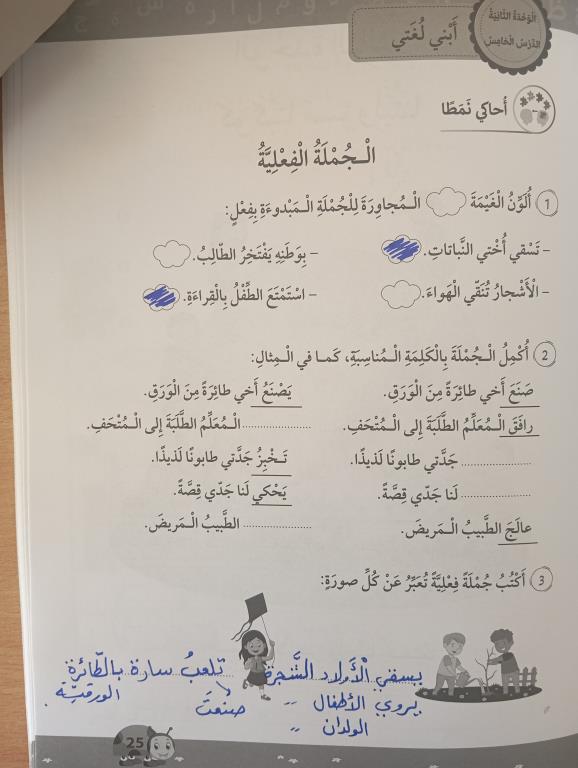 الْوَحْدَةُ الثّانِيَةُ
الدَّرْسُ الْخامِسُ
أَبْني لُغَتي
أُحاكي نَمَطًا
الْـجُمْلَةُ الْفِعْلِيَّةُ
1 أُلَوِّنُ الْغَيْمَةَ الْـمُجاوِرَةَ لِلْجُمْلَةِ الْـمَبْدوءَةِ بِفِعْلٍ:
– تَسْقي أُخْتي النَّباتاتِ. – بِوَطَنِهِ يَفْتَخِرُ الطّالِبُ.
– الْأَشْجارُ تُنَقّي الْهَواءَ. – اسْتَمْتَعَ الطِّفْلُ بِالْقِراءَةِ.
2 أُكْمِلُ الْـجُمْلَةَ بِالْكَلِمَةِ الْـمُناسِبَةِ، كَمـا في الْـمِثالِ:
صَنَعَ أَخي طائِرَةً مِنَ الْوَرَقِ. يَصْنَعُ أَخي طائِرَةً مِنَ الْوَرَقِ.
رافَقَ الْـمُعَلِّمُ الطَّلَبَةَ إِلى الْـمُتْحَفِ. .................... الْـمُعَلِّمُ الطَّلَبَةَ إِلى الْـمُتْحَفِ.
.................... جَدَّتي طابونًا لَذيذًا. تَـخْبِزُ جَدَّتي طابونًا لَذيذًا.
.................... لَنا جَدّي قِصَّةً. يَحْكي لَنا جَدّي قِصَّةً.
عالَجَ الطَّبيبُ الْـمَريضَ. .................... الطَّبيبُ الْـمَريضَ.
3 أَكْتُبُ جُمْلَةً فِعْلِيَّةً تُعَبِّرُ عَنْ كُلِّ صورَةٍ:
يسقي الْأَولاد الشَّجرة تلعبُ سارة بالطّائرة
يروي الأطفال " صنعتْ الورقيّة .
الولدان "
25